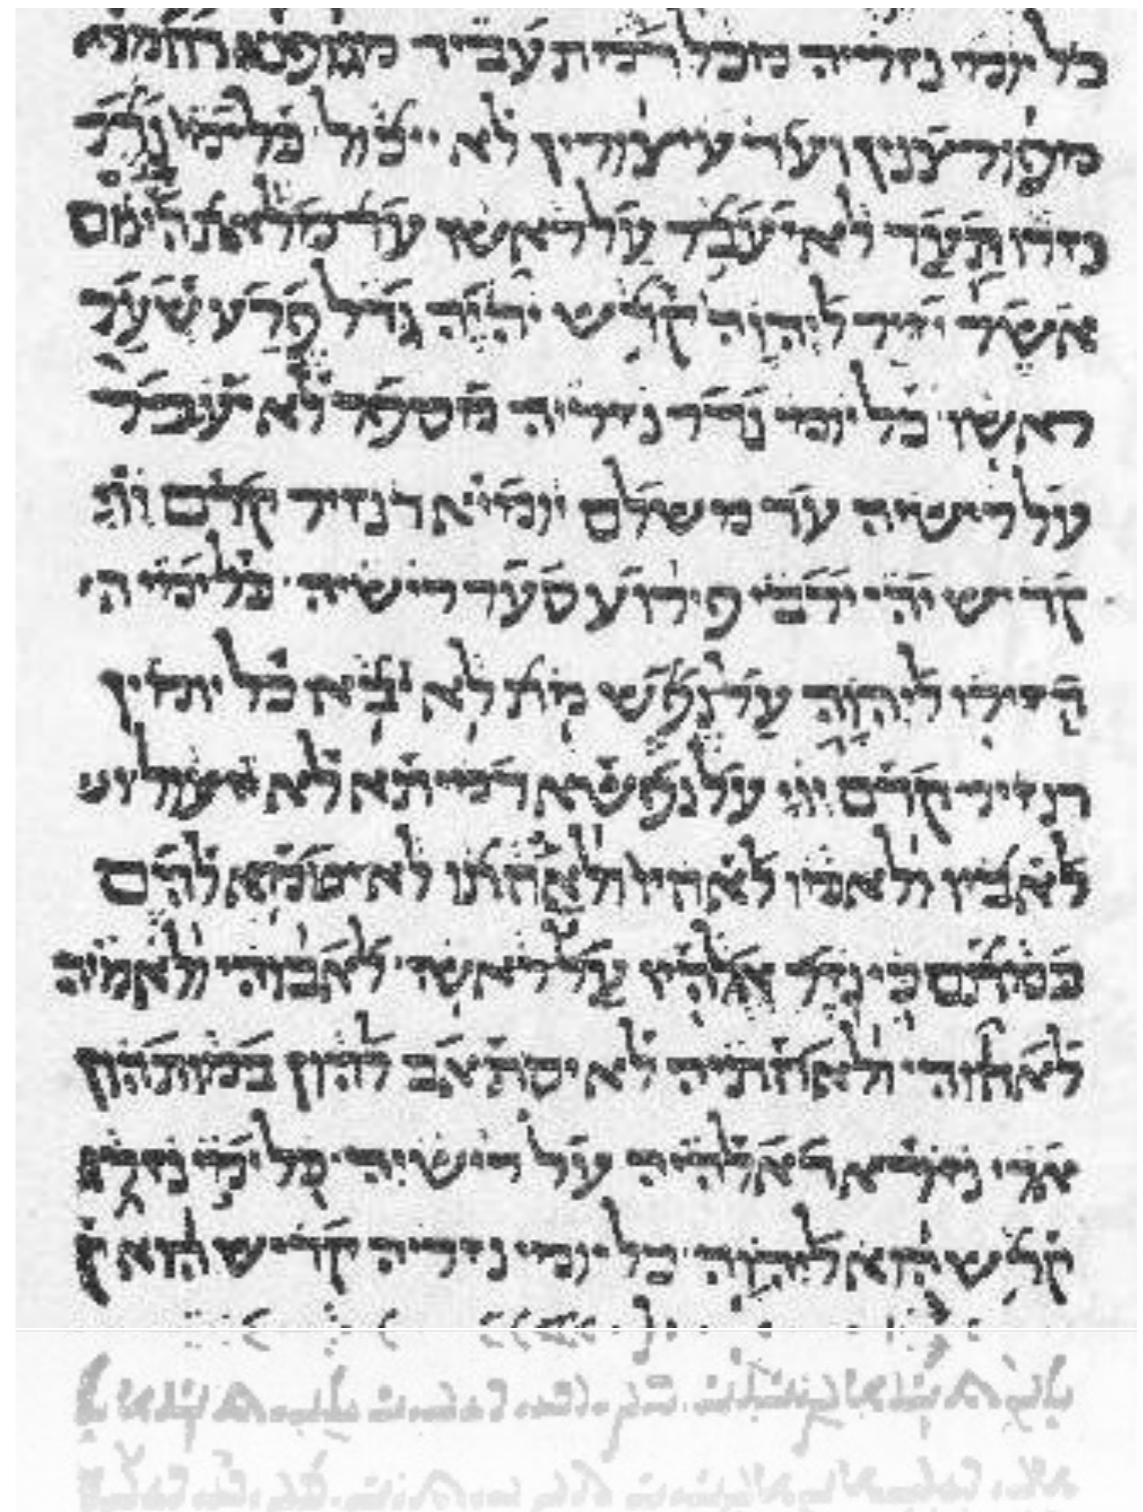 כל יומי נזריה מכל דמתעביד מגופנא דחמרא
מפורצנין ועד עיצורין לא ייכול כל ימי נדר
נזרו תער לא יעבר על ראשו עד מלאת הימם
אשר יזיר ליהוה קדש יהיה גדל פרע שער
ראשו כל יומי נדר נזריה מספר לא יעבר
על רישיה עד משלם יומיא דנזיר קדם
קדיש יהי ירבי פירוע סער רישיה כל ימי ה
הזירו ליהוה על נפש מת לא יבא כל יומין
דנזיר קדם ייי על נפשא דמיתא לא ייעול
לאביו ולאמו לאחיו ולאחתו לא יטמא להם
במתם כי נזר אלהיו על ראשו לאבוהי ולאמיה
לאחוהי ולאחתיה לא יסתאב להון במותהון
ארי נזרא דאלהיה על רישיה כל ימי נזרו
קדש הוא ליהוה כל יומי נזריה קדיש הוא ק